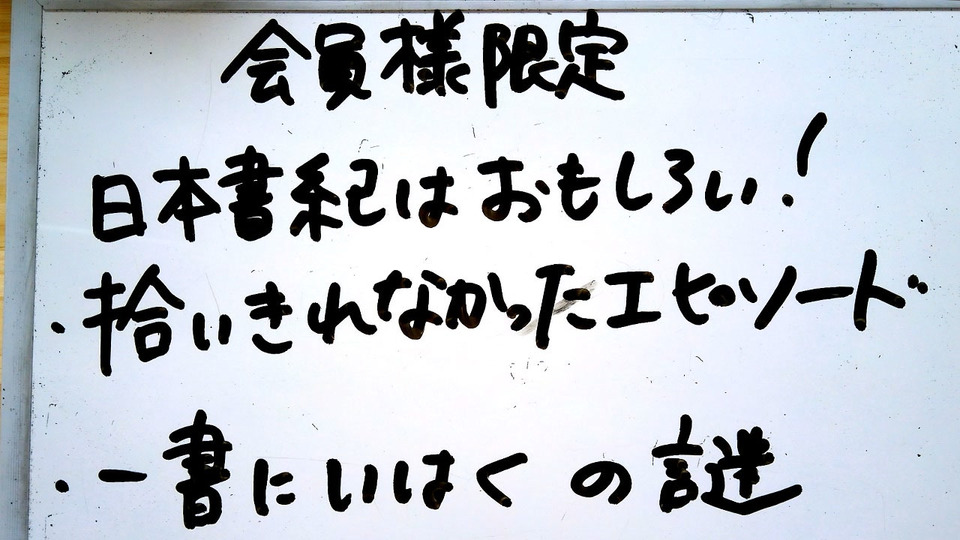 会員様限定
日本書紀はおもしろい!
・拾いきれなかったエピソード
・一書にいはくの謎